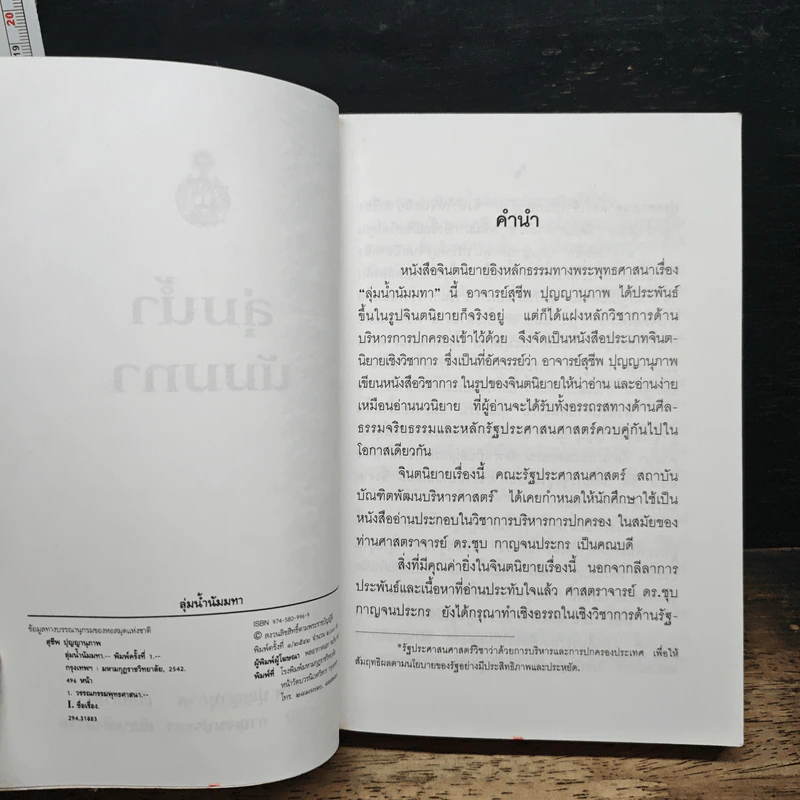 20
19
ลุ่มน้ำนัมมทา
ข้อมูลทางบรรณานุกรมของหอสมุดแห่งชาติ
สุชีพ ปุญญานุภาพ
ลุ่มน้ำนัมมทา.-- พิมพ์ครั้งที่ 1.--
กรุงเทพฯ : มหามกุฏราชวิทยาลัย, 2542.
496 หน้า
1. วรรณกรรมพุทธศาสนา.--
I. ชื่อเรื่อง.
294.31883
ISBN 974-580-996-9
© สงวนลิขสิทธิ์ตามพระราชบัญญัติ
พิมพ์ครั้งที่
ผู้พิมพ์ผู้โฆษณา
พิมพ์ที่ โรงพิมพ์มหามกุฏราชวิทยาลัย
หน้าวัดบวรนิเวศวิหาร
โทร.
คำนำ
หนังสือจินตนิยายอิงหลักธรรมทางพระพุทธศาสนาเรื่อง
“ลุ่มน้ำนัมมทา” นี้ อาจารย์สุชีพ ปุญญานุภาพ ได้ประพันธ์
ขึ้นในรูปจินตนิยายก็จริงอยู่ แต่ก็ได้แฝงหลักวิชาการด้าน
บริหารการปกครองเข้าไว้ด้วย จึงจัดเป็นหนังสือประเภทจินต-
นิยายเชิงวิชาการ ซึ่งเป็นที่อัศจรรย์ว่า อาจารย์สุชีพ ปุญญานุภาพ
เขียนหนังสือวิชาการ ในรูปของจินตนิยายให้น่าอ่าน และอ่านง่าย
เหมือนอ่านนวนิยาย ที่ผู้อ่านจะได้รับทั้งอรรถรสทางด้านศีล-
ธรรมจริยธรรมและหลักรัฐประศาสนศาสตร์ควบคู่กันไปใน
โอกาสเดียวกัน
จินตนิยายเรื่องนี้ คณะรัฐประศาสนศาสตร์ สถาบัน
บัณฑิตพัฒนบริหารศาสตร์* ได้เคยกำหนดให้นักศึกษาใช้เป็น
หนังสืออ่านประกอบในวิชาการบริหารการปกครอง ในสมัยของ
ท่านศาสตราจารย์ ดร.ชุบ กาญจนประกร เป็นคณบดี
สิ่งที่มีคุณค่ายิ่งในจินตนิยายเรื่องนี้ นอกจากลีลาการ
ประพันธ์และเนื้อหาที่อ่านประทับใจแล้ว ศาสตราจารย์ ดร.ชุบ
กาญจนประกร ยังได้กรุณาทำเชิงอรรถในเชิงวิชาการด้านรัฐ-
*รัฐประศาสนศาสตร์วิชาว่าด้วยการบริหารและการปกครองประเทศ เพื่อให้
สัมฤทธิผลตามนโยบายของรัฐอย่างมีประสิทธิภาพและประหยัด.